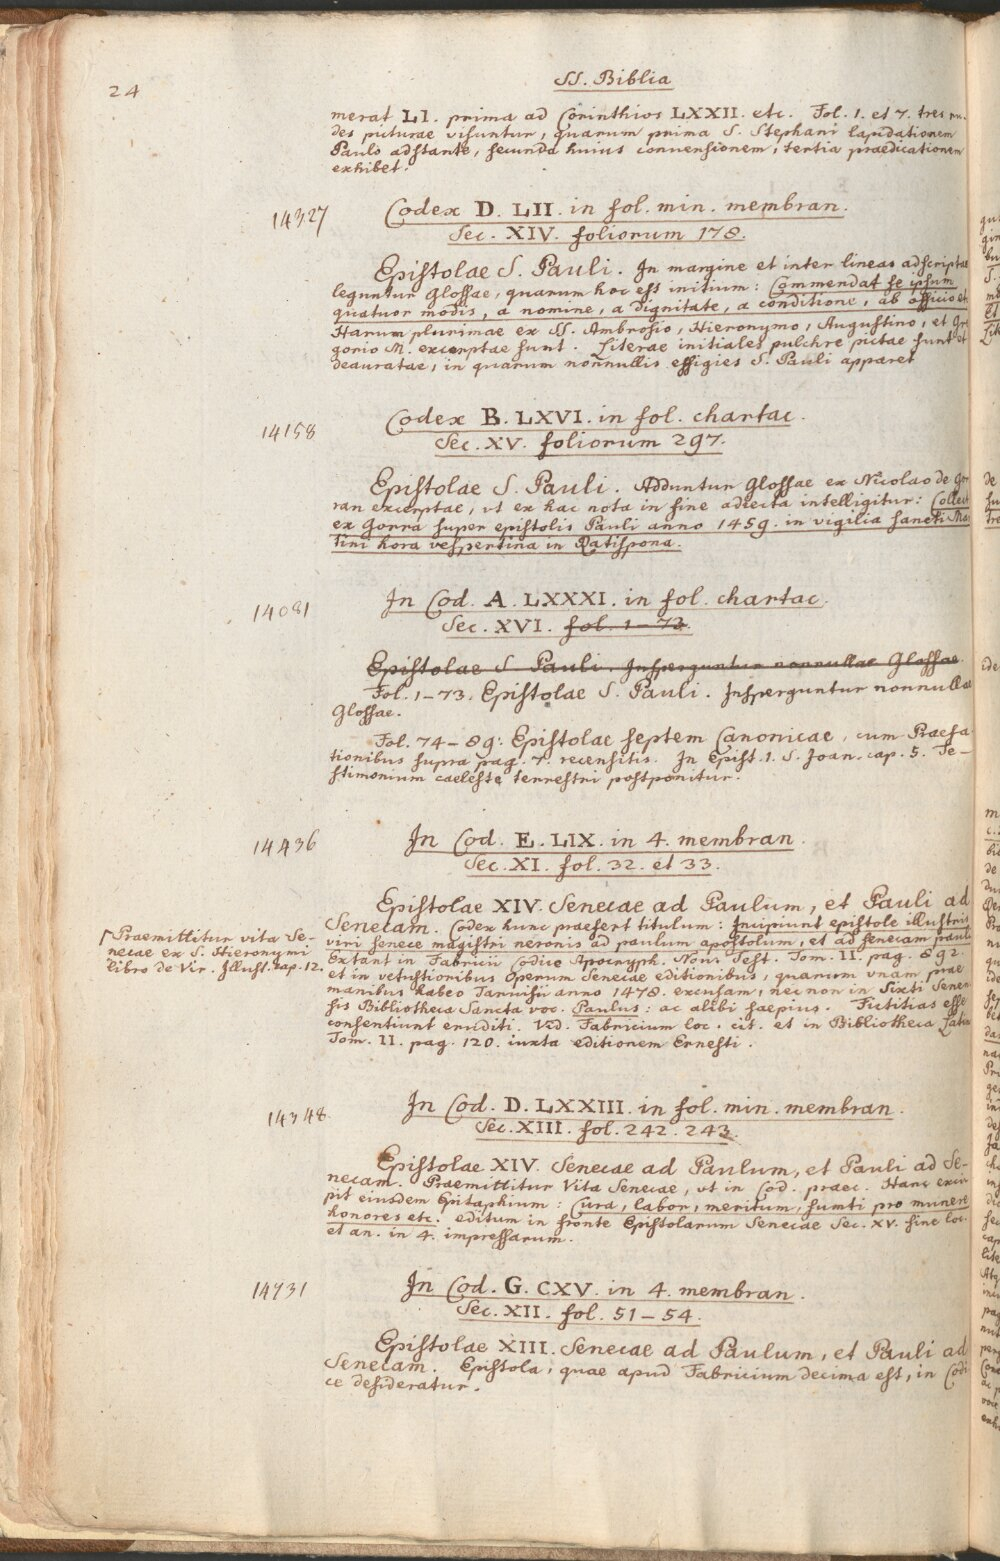 24
SS. Biblia
merat LI. prima ad Corinthios LXXII. etc. Fol. 1. et 7. tres ru-
des picturae visuntur, quarum prima S. Stephani lapidationem
Paulo adstante, secunda huius conversionem, tertia praedicationem
exhibet.
14327
Codex D. LII. in fol. min. membran.
Sec. XIV. foliorum 178.
Epistolae S. Pauli. In margine et inter lineas adscriptae
leguntur glossae, quarum hoc est initium: Commendat se ipsum
quatuor modis, a nomine, a dignitate, a conditione, ab officio et
Harum plurimae ex SS. Ambrosio, Hieronymo, Augustino, et Gre
gorio M. excerptae sunt. Literae initiales pulchre pictae sunt et
deauratae, in quarum nonnullis effigies S. Pauli apparet
14158
Codex B. LXVI. in fol. chartac.
Sec. XV. foliorum 297.
Epistolae S. Pauli. Adduntur Glossae ex Nicolao de Gor
ran excerptae, ut ex hac nota in fine adiecta intelligitur: Collect
ex Gorra super epistolis Pauli anno 1459. in vigilia sancti Mar
tini hora vespertina in Ratispona.
14081
In Cod. A. LXXXI. in fol. chartac.
Sec. XVI. fol. 1-73.
Epistolae S. Pauli. Insperguntur nonnullae Glossae.
Fol. 1-73. Epistolae S. Pauli. Insperguntur nonnullae
Glossae.
Fol. 74-89. Epistolae septem Canonicae, cum Praefa
tionibus supra pag. 7. recensitis. In Epist. 1. S. Joan. cap. 5. Te-
stimonium caeleste terrestri postponitur.
14436
In Cod. E. LIX. in 4. membran.
Sec. XI. fol. 32. et 33.
Epistolae XIV. Senecae ad Paulum, et Pauli ad
Senecam. Codex hunc praefert titulum: Incipiunt epistole illustris
viri senece magistri neronis ad paulum apostolum, et ad senecam pauli
Extant in Fabricii Codice Apocryph. Novi Test. Tom. II. pag. 892.
et in vetustioribus operum Senecae editionibus, quarum unam prae
manibus habeo Tarvisii anno 1478. excusam, nec non in Sixti Senen
sis Bibliotheca Sancta voc. Paulus: ac alibi saepius. Fictitias esse
consentiunt eruditi. Vid. Fabricium loc. cit. et in Bibliotheca Latin
Tom. II. pag. 120. iuxta editionem Ernesti.
Praemittitur vita Se-
necae ex S. Hieronymi
libro de Vir. Illust. cap. 12.
14348
In Cod. D. LXXIII. in fol. min. membran.
Sec. XIII. fol. 242. 243.
Epistolae XIV. Senecae ad Paulum, et Pauli ad Se-
necam. Praemittitur Vita Senecae, ut in Cod. praec. Hanc exci
pit eiusdem Epitaphium: Cura, labor, meritum, sumti pro munere
honores etc. editum in fronte Epistolarum Senecae Sec. XV. sine loc.
et an. in 4. impressarum.
14731
In Cod. G. CXV. in 4. membran.
Sec. XII. fol. 51-54.
Epistolae XIII. Senecae ad Paulum, et Pauli ad
Senecam. Epistola, quae apud Fabricium decima est, in Codi
ce desideratur.